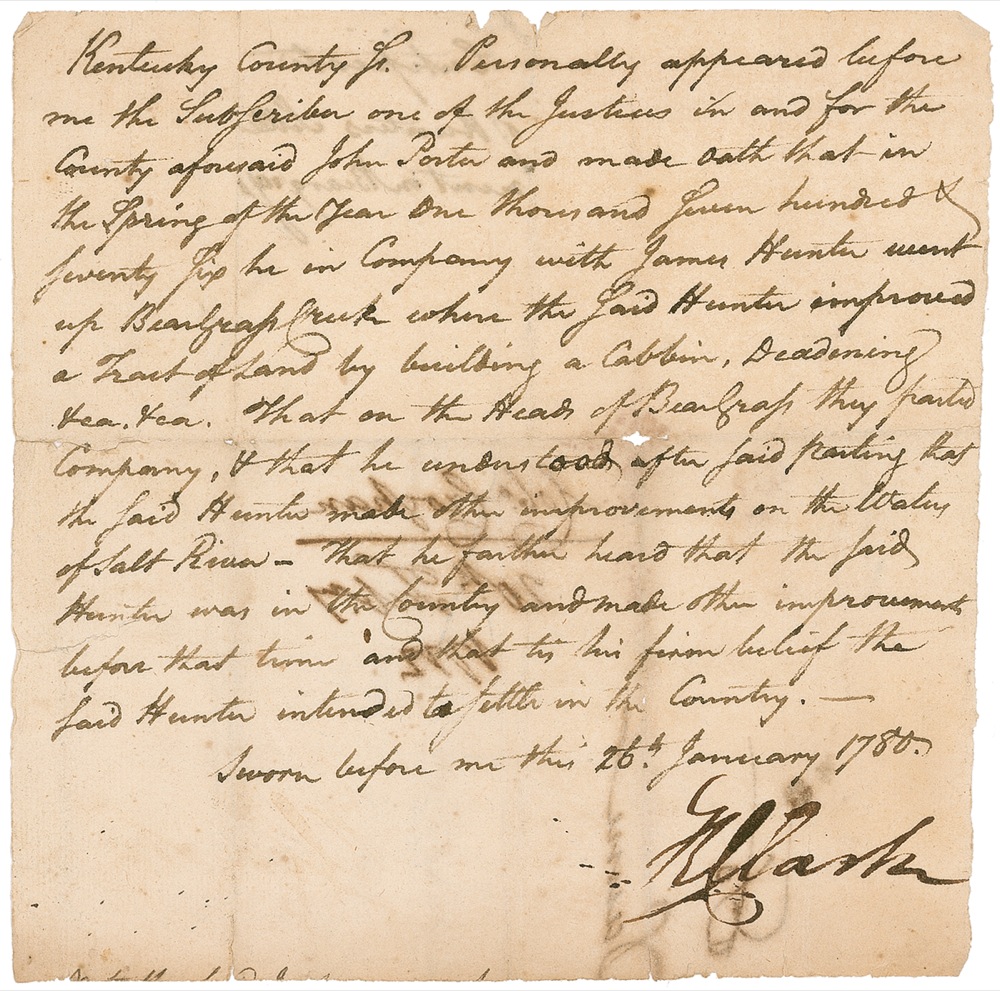 Kentucky County Ss. Personally appeared before
me the Subscriber one of the Justices in and for the
County aforesaid John Porter and made oath that in
the Spring of the Year One thousand Seven hundred &
Seventy Six he in Company with James Hunter went
up BearGrass Creek where the Said Hunter improved
a Tract of Land by building a Cabbin, Deadening
&ca. &ca. That on the Heads of BearGrass they parted
Company, & that he understood after said Parting that
the said Hunter made other improvements on the Waters
of Salt River - That he farther heard that the said
Hunter was in the Country and made other improvements
before that time and that tis his firm belief the
said Hunter intended to settle in the Country. —
Sworn before me this 26th. January 1780.
Clark